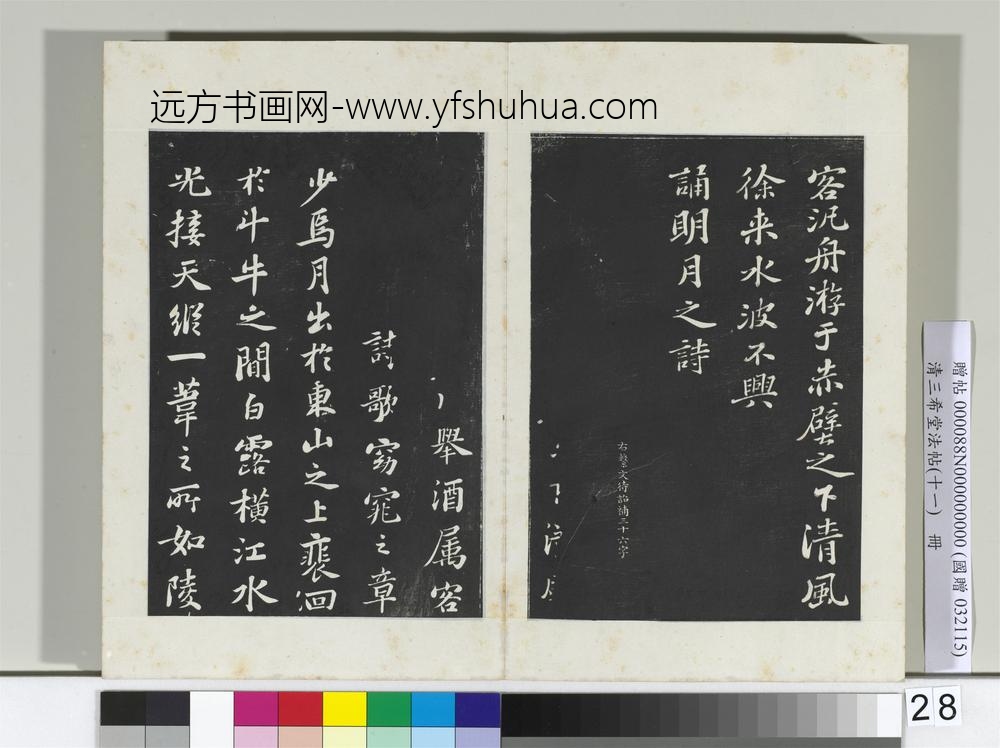 远方书画网-www.yfshuhua.com
客汎舟游于赤壁之下清風
徐来水波不興
誦明月之詩
舉酒属客
歌窈窕之章
少焉月出於東山之上裵洄
於斗牛之間白露橫江水
光接天縱一葦之所如陵
贈帖 000088N000000000 (國贈 032115)
清三希堂法帖(十一) 冊
28